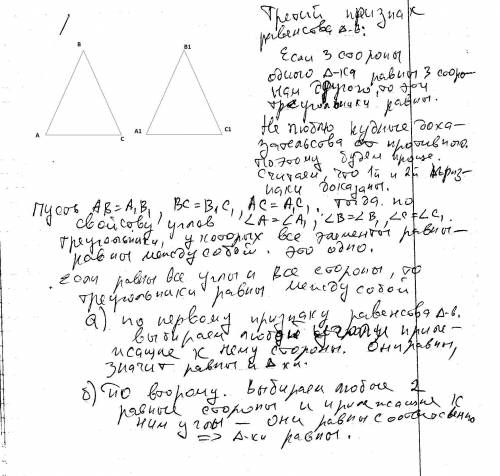 Третий признак
равенсова Δ-в:
B
B1
Если 3 стороны
одного Δ-ка равны 3 сторо-
нам другого, то эти
треугольники равны.
A
C
A1
C1
Не люблю нудные дока-
зательсва от противного.
Поэтому будем проще.
Считаем, что 1й и 2й приз-
наки доказаны.
Пусть AB=A₁B₁, BC=B₁C₁, AC=A₁C₁. Тогда по
свойсву углов ∠A=∠A₁; ∠B=∠B₁, ∠C=∠C₁.
Треугольники, у которых все элементы равны -
равны между собой. Это одно.
Если равны все углы и все стороны, то
треугольники равны между собой
а) по первому признаку равенсова Δ-в.
выбираем любые и приле-
жащие к нему стороны. Они равны,
значит равны и Δ-ки.
б) По второму. Выбираем любые 2
равные стороны и прилежащие к
ним углы - они равны соответсвенно
=> Δ-ки равны.